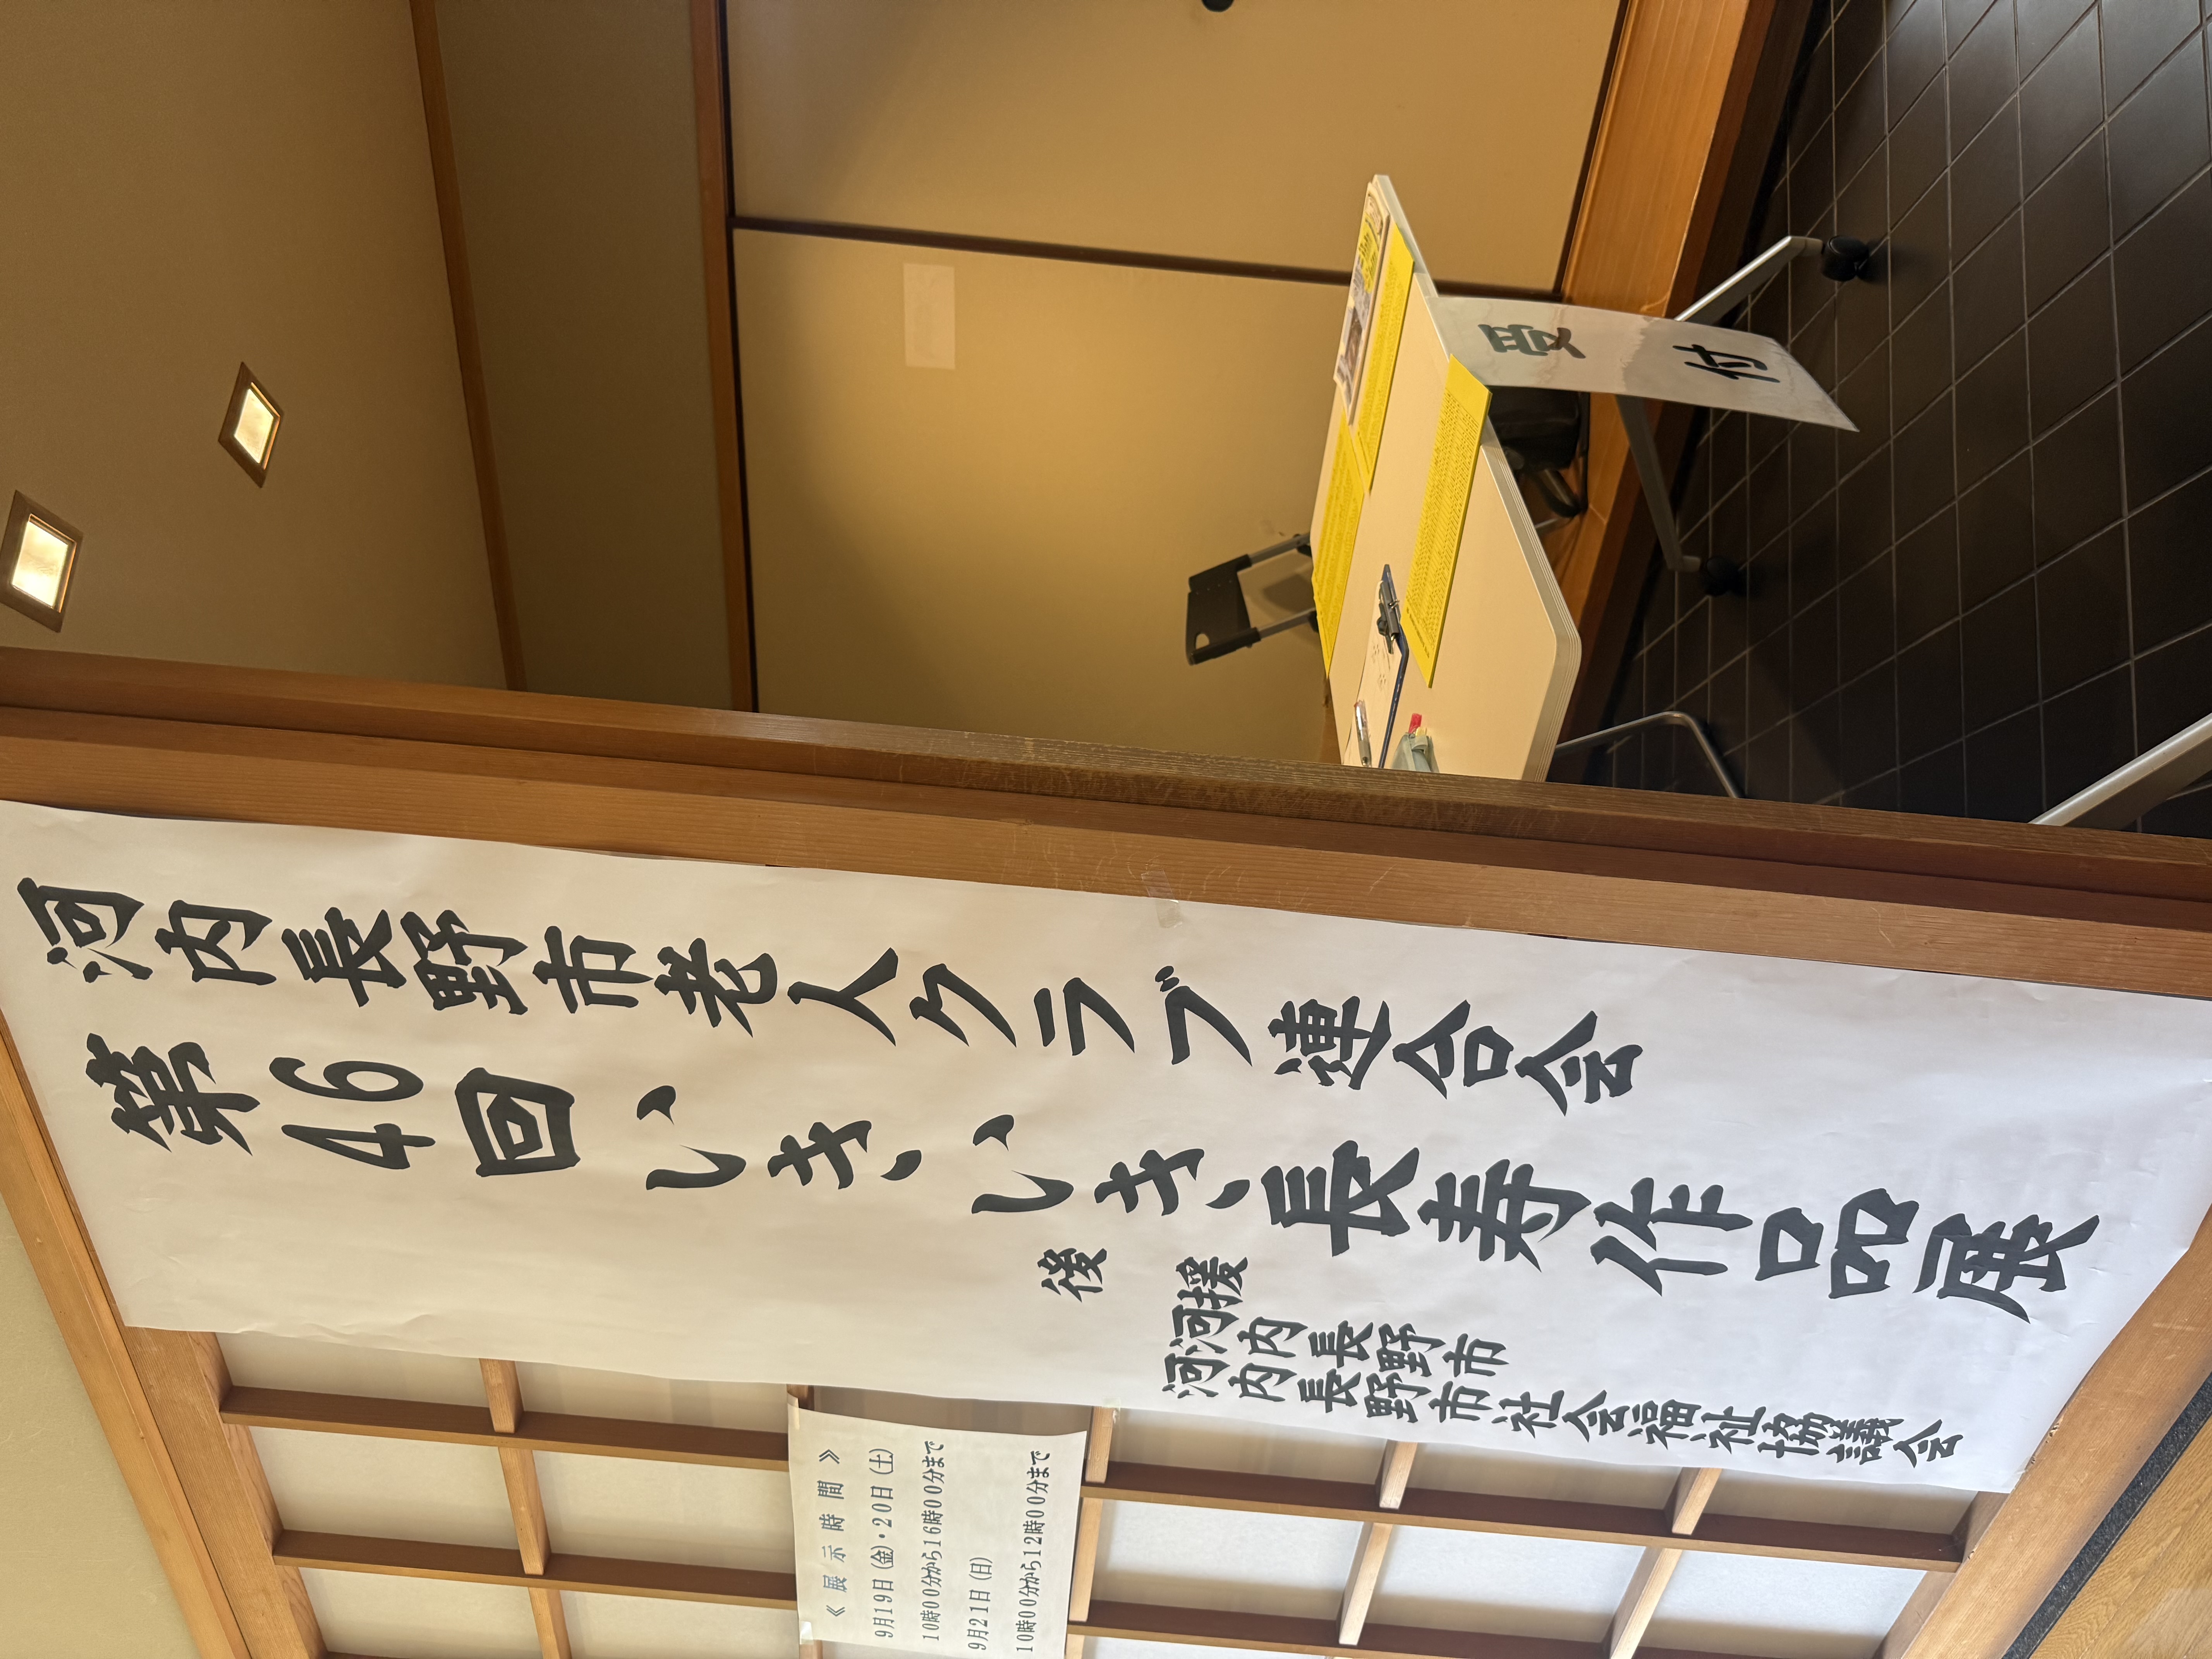 河内長野市老人クラブ連合会
第46回いきいき長寿作品展
後援
河内長野市
河内長野市社会福祉協議会
《展示時間》
9月19日(金)・20日(土)
10時00分から16時00分まで
9月21日(日)
10時00分から12時00分まで
受付